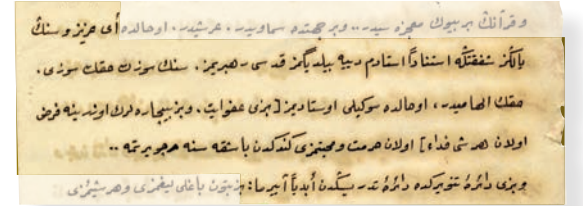 و قرآنڭ بر بيوك معجزه سيدر .. و بر جهتده سماويدر . عرشيدر . اوحالده أى عزيز و سنڭ
يالڭز شفقتڭه استناداً استادم دييه بيلديگمز قدسى رهبريمز . سنك سوزك حقك سوزى .
حقك الهاميدر ، اوحالده سوكيلى اوستاديمز [ بزى عفو ايت . و بز بيچاره لرك اوندينه فرض
اولان هر شى فداء ] اولان حرمت و محبتمزى كندكدن باشقه سنه ويرديرتمه ..
و بزى دائرۀ تنويركده دائرۀ تدريسكدن أبدياً آييرما : بز بتون باغلى ليغمزى و هر شيئمزى